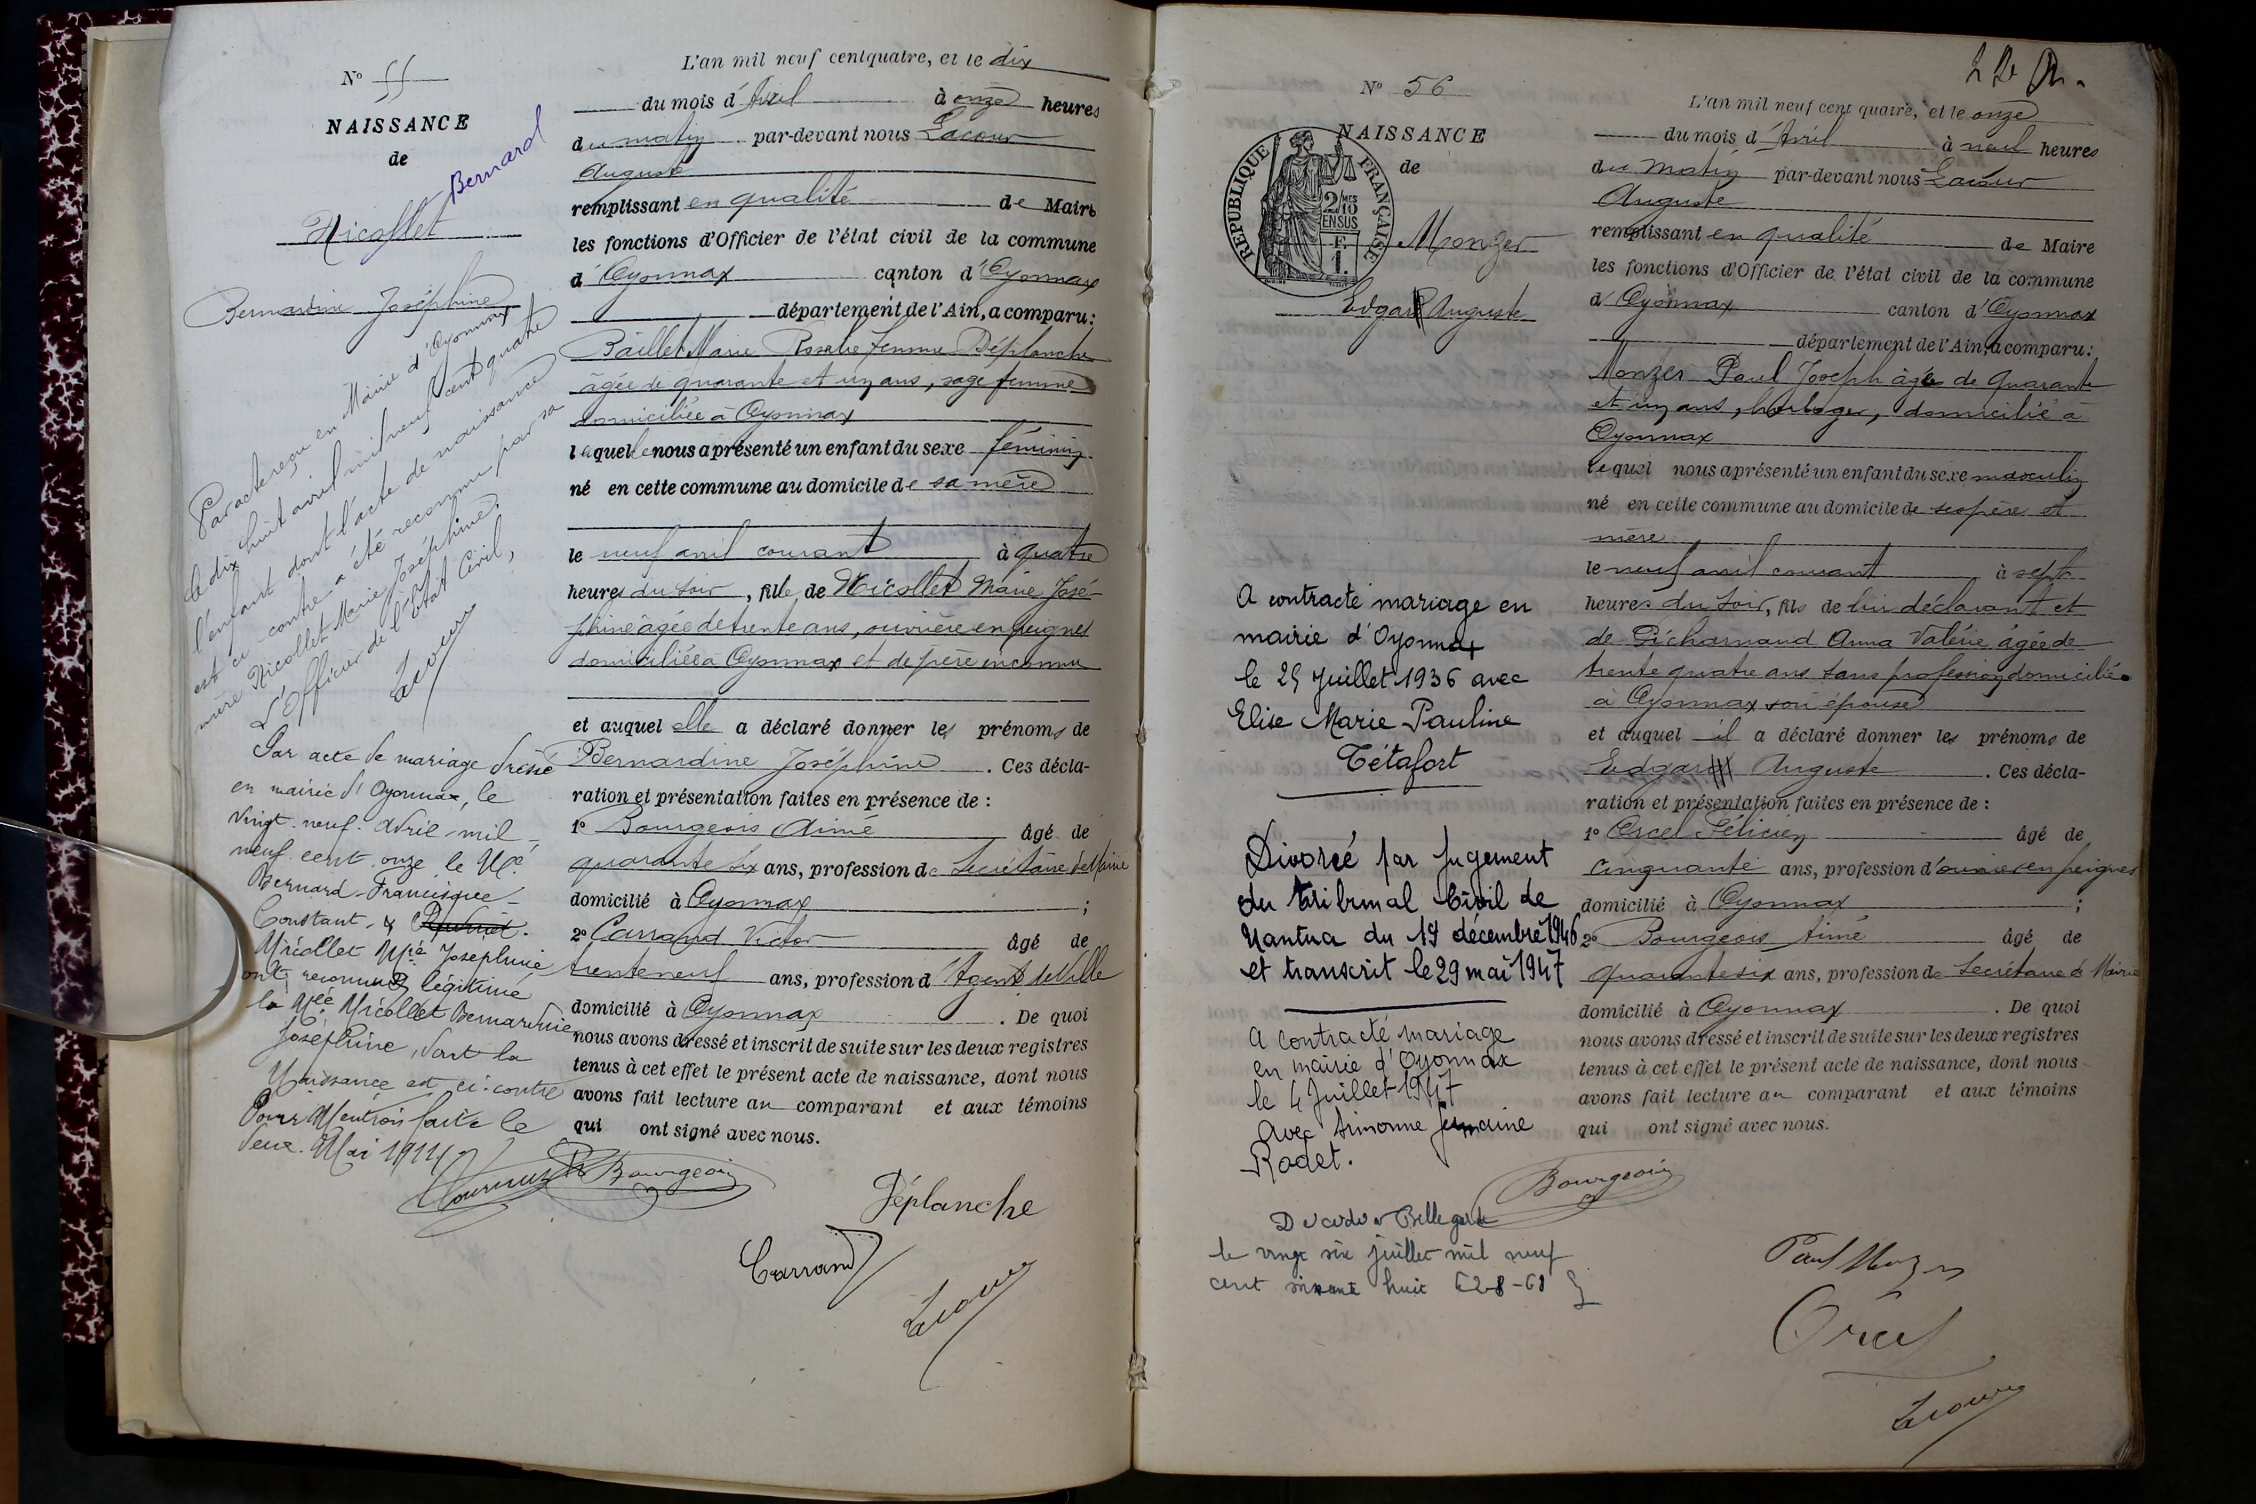 N° 55
NAISSANCE
de
Nicollet
Bernard
Bernardine Joséphine
Par acte reçu en Mairie d'Oyonnax
le dix huit avril mil neuf cent quatre
l'enfant dont l'acte de naissance
est ci contre a été reconnu par sa
mère Nicollet Marie Joséphine.
L'Officier de l'Etat Civil,
Lacour
Par acte de mariage dressé
en mairie d'Oyonnax, le
vingt-neuf avril mil
neuf cent onze le
Bernard Francisque
Constant, &
Nicollet Mie Joséphine
ont reconnu & légitimé
la Nicollet Bernardine
Joséphine, dont la
Naissance est ci-contre
Pour Mention faite le
deux Mai 1914
L'an mil neuf cent quatre, et le dix
du mois d'Avril à onze heures
du matin par-devant nous Lacour
Auguste
remplissant en qualité de Maire
les fonctions d'Officier de l'état civil de la commune
d'Oyonnax canton d'Oyonnax
département de l'Ain, a comparu:
Baillet Marie Rosalie femme Déplanche
âgée de quarante et un ans, sage femme
domiciliée à Oyonnax
laquelle nous a présenté un enfant du sexe féminin
né en cette commune au domicile de sa mère
le neuf avril courant à quatre
heures du soir, fille de Nicollet Marie José-
phine âgée de trente ans, ouvrière en peignes
domiciliée à Oyonnax et de père inconnu
et auquel elle a déclaré donner les prénoms de
Bernardine Joséphine. Ces décla-
ration et présentation faites en présence de :
1° Bourgeois Aimé âgé de
quarante six ans, profession de Secrétaire de Mairie
domicilié à Oyonnax ;
2° Carrand Victor âgé de
trente neuf ans, profession d'Agent de Ville
domicilié à Oyonnax. De quoi
nous avons dressé et inscrit de suite sur les deux registres
tenus à cet effet le présent acte de naissance, dont nous
avons fait lecture au comparant et aux témoins
qui ont signé avec nous.
Bourgeois
Déplanche
Carrand
Lacour
N° 56
NAISSANCE
de
REPUBLIQUE FRANÇAISE
2/10 MES
EN SUS
1 F.
Monzer
Edgar Auguste
A contracté mariage en
mairie d'Oyonnax
le 25 Juillet 1936 avec
Elise Marie Pauline
Tétafort
Divorcé par Jugement
du tribunal Civil de
Nantua du 19 décembre 1946
et transcrit le 29 mai 1947
A contracté mariage
en mairie d'Oyonnax
le 4 Juillet 1947
avec Simonne Germaine
Rodet.
Décédé à Bellegarde
le vingt six juillet mil neuf
cent soixante huit
L'an mil neuf cent quatre, et le onze
du mois d'Avril à neuf heures
du matin par-devant nous Lacour
Auguste
remplissant en qualité de Maire
les fonctions d'Officier de l'état civil de la commune
d'Oyonnax canton d'Oyonnax
département de l'Ain, a comparu:
Monzer Paul Joseph âgé de quarante
et un ans, horloger, domicilié à
Oyonnax
lequel nous a présenté un enfant du sexe masculin
né en cette commune au domicile de ses père et
mère
le neuf avril courant à sept
heures du soir, fils de lui déclarant et
de Picharnaud Anna Valérie âgée de
trente quatre ans sans profession, domiciliée
à Oyonnax son épouse
et auquel il a déclaré donner les prénoms de
Edgar Auguste. Ces décla-
ration et présentation faites en présence de :
1° Orcel Félicien âgé de
cinquante ans, profession d'ouvrier en peignes
domicilié à Oyonnax ;
2° Bourgeois Aimé âgé de
quarante six ans, profession de Secrétaire de Mairie
domicilié à Oyonnax. De quoi
nous avons dressé et inscrit de suite sur les deux registres
tenus à cet effet le présent acte de naissance, dont nous
avons fait lecture au comparant et aux témoins
qui ont signé avec nous.
Bourgeois
Paul Monzer
Orcel
Lacour